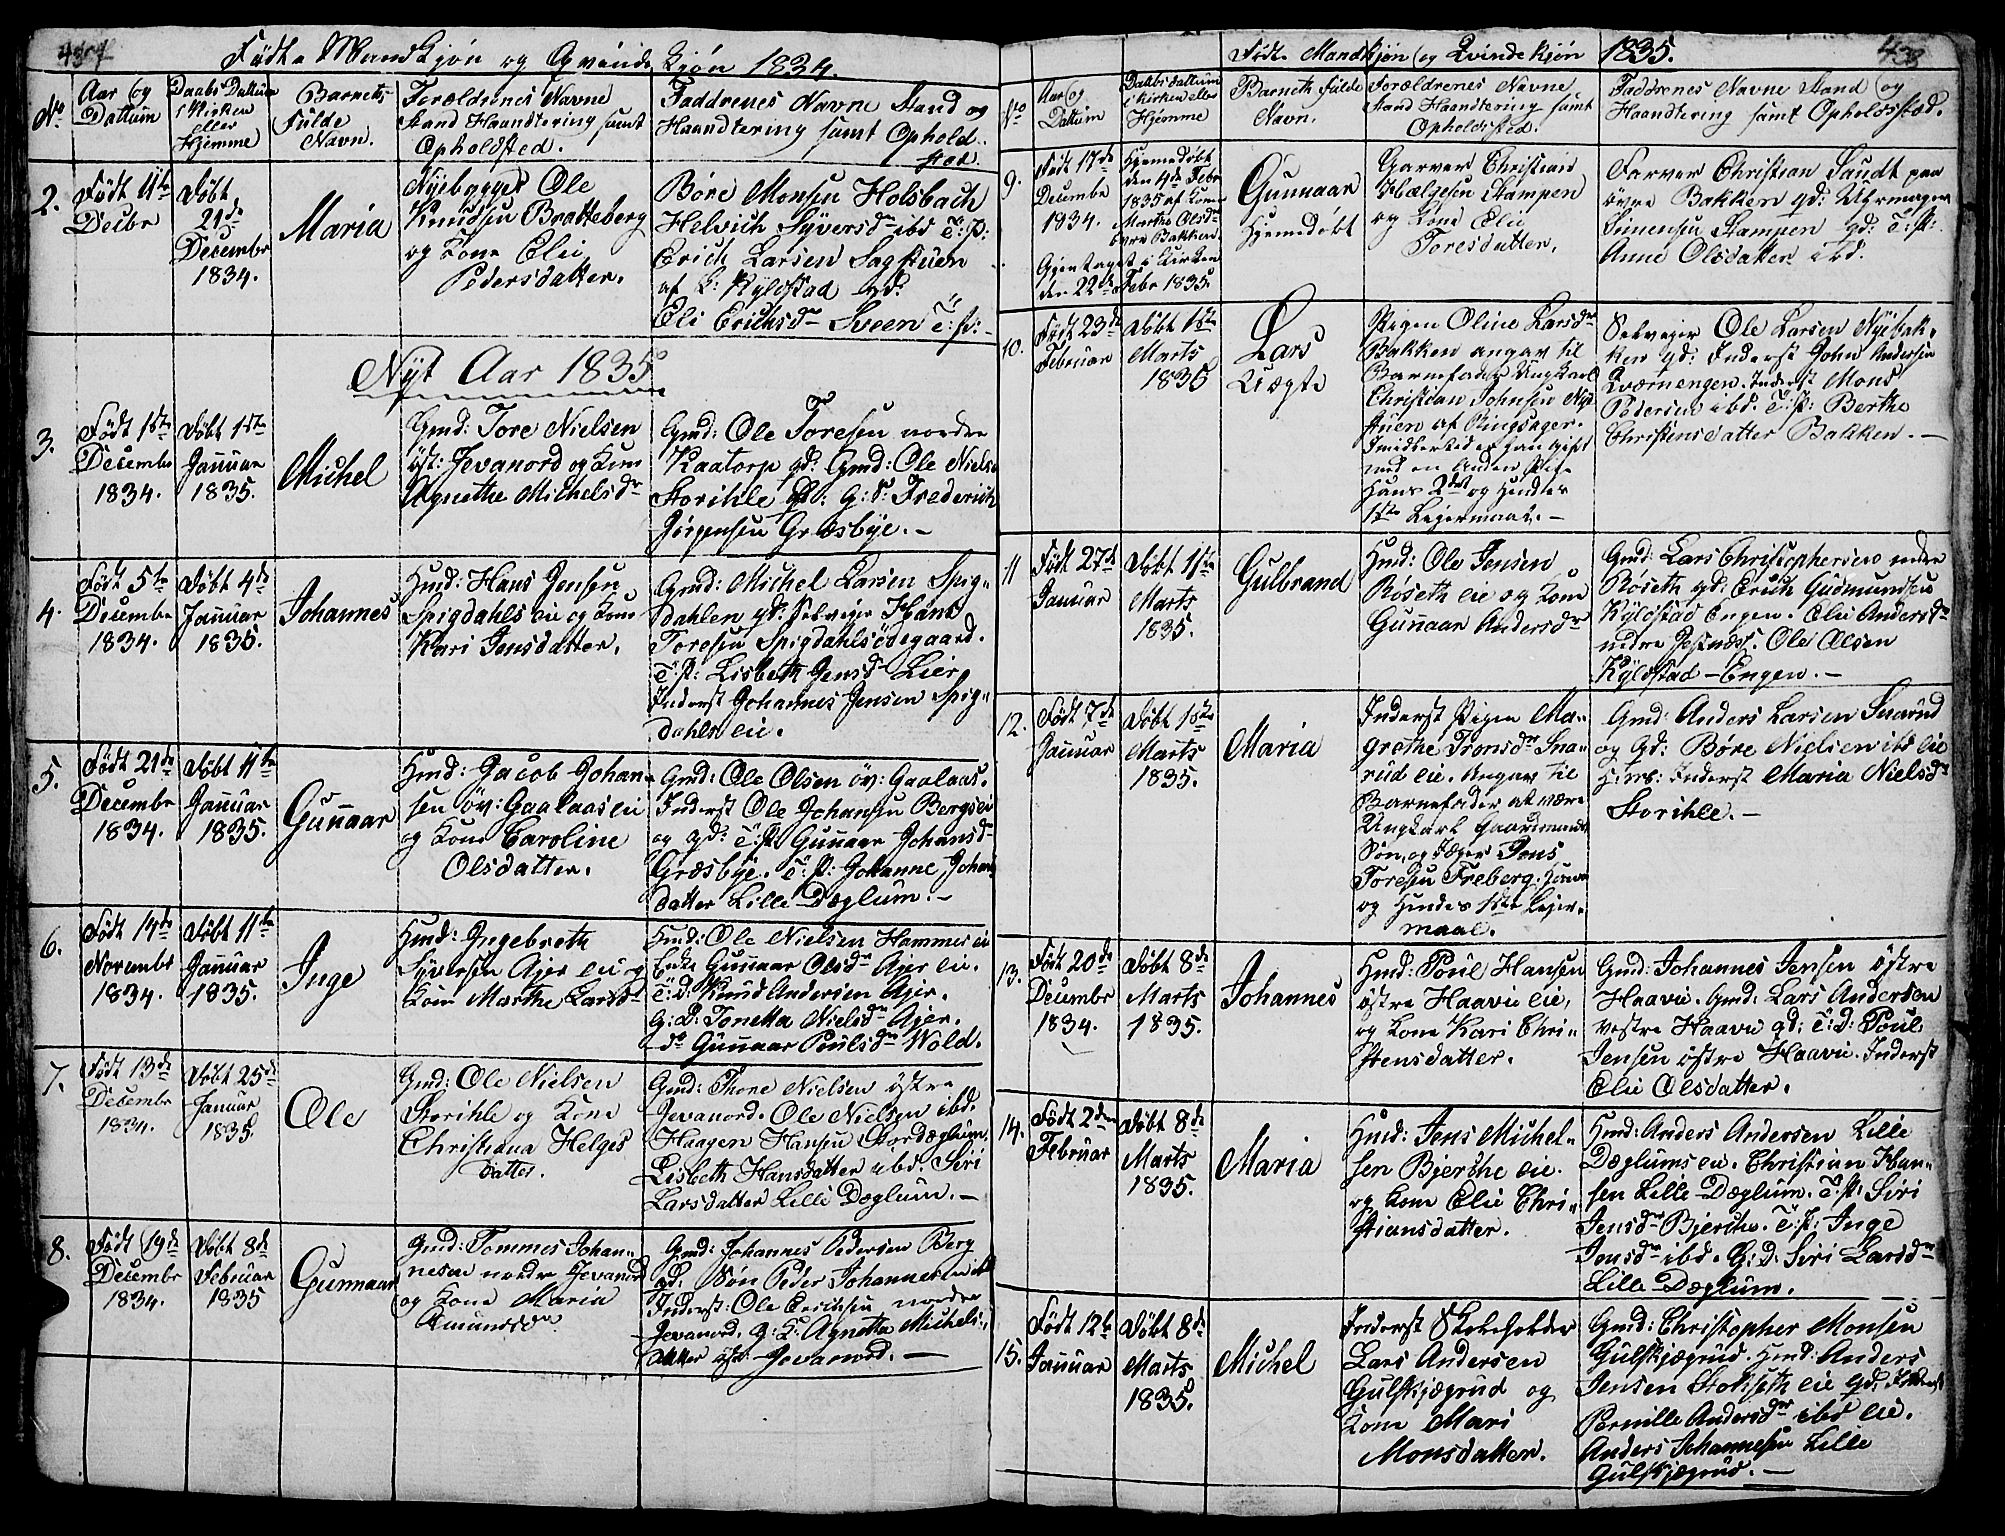 Födte Mandkjøn og Qvinde Kjön 1834.
No
Aar og Dattum
Daabs Dattum i Kirken eller Hjemme
Barnets Fulde Navn.
Forældrenes Navne Stand Haandtering samt Opholdsted.
Faddrenes Navne Stand og Haandtering samt Ophold. sted.
2.
Födt 11te
Decbr
Döbt
21de
Decembr
1834.
Maria
Nyebygger Ole
Knudsen Bratteberg
og Kone Elie
Pedersdatter.
Böre Monsen Holsbach
Helvich Syversdr ibd T: P:
Erich Larsen Sagstuen
af L: Kyldstad gd.
Eli Erichsdr Sveen T: P: -
Nyt Aar 1835
3.
Födt 1ste
Decembr
1834.
Döbt 1ste
Januar
1835.
Michel
Gmd: Tore Nielsen
öst: Jevanord og Kone
Agnethe Michelsdr
Gmd: Ole Toresen nordre
Kaatorp gd: Gmd: Ole Nielsen
Storihle gd: G: S: Frederich
Jörgensen Græsbye. -
4.
Födt 5te
Decembr
1834.
Döbt 4de
Januar
1835.
Johannes
Hmd: Hans Jensen
Spigdahls eie og Kone
Kari Jensdatter.
Gmd: Michel Larsen Spig-
dahlen gd: Selveier Hans
Toresen Spigdahlsödegaard.
T: P: Lisbeth Jensdr Lier
Inderst Johannes Jensen Spig-
dahls eie.
5.
Födt 21de
Decembr
1834.
Döbt 11te
Januar
1835.
Gunnaar
Hmd: Jacob Johan-
sen öv: Gaalaas eie
og Kone Caroline
Olsdatter.
Gmd: Ole Olsen öv: Gaalaas.
Inderst Ole Johansen Bergseie
og gd: T: P: Gunnar Johansdr
Græsbye. T: P: Johanne Johans
datter Lille Dæglum. -
6.
Födt 14de
Novembr
1834.
Döbt 11te
Januar
1835.
Inge
Hmd: Ingebreth
Syversen Ajer eie og
Kone Marthe Larsdr
Hmd: Ole Nielsen Hammer eie
Enke Gunnaar Olsdr Ajer eie.
T: D. Knud Andersen Ajer.
G: D: Tonetta Nielsdr Ajer.
do Gunnaar Poulsdr Wold.
7.
Födt 13de
Decembr
1834.
Döbt 25de
Januar
1835.
Ole
Gmd: Ole Nielsen
Storihle og Kone
Christiana Helges
datter.
Gmd: Thore Nielsen östre
Jevanord. Ole Nielsen ibd.
Haagen Hansen Stordæglum.
Lisbeth Hansdatter ibd. Siri
Larsdatter Lille Dæglum. -
8.
Födt 19de
Decembr
1834.
Döbt 8de
Februar
1835
Gunnaar
Gmd: Tommes Johan-
nesen nordre Jevanord
og Kone Maria
Amundsdr
Gmd: Johannes Pedersen Berg
gd: Sön Peder Johannesen ibd
Inderst: Ole Erichsen nordre
Jevanord. g: K: Agnetta Michels-
datter öst: Jevanord. -
Födte Mandkjön og Qvindekjön 1835.
438
No
Aar og Dattum
Daabs Dattum i Kirken eller Hjemme
Barnets fulde Navn.
Forældrenes Navne Stand Haandtering samt Opholdsted.
Faddrenes Navne Stand og Haandtering samt Opholdsstad.
9.
Födt 17de
Decembr
1834.
Hjemedöbt
den 4de Febr
1835 af Kone
Marthe Olsdr
övre Bakken.
Gjentaget i Kirken
den 22de Febr 1835.
Gunnaar
Hjemedöbt
Garver Christian
Helgesen Stampen
og Kone Elie
Toresdatter.
Farver Christian Sandt paa
övre Bakken gd: Uhrmager
Simensen Stampen gd: T: P:
Anne Olsdatter ibd.
10.
Födt 23de
Februar
Döbt 1ste
Marts
1835
Lars
Uægte
Pigen Oline Larsdr
Bakken angav til
Barnefader Ungkarl
Christian Johnsen Nye
stuen af Ringsager.
Imidlertid er han gift
med en Anden Pige
Hans 2det og Hendes
1ste Lejermaal. -
Selveger Ole Larsen Nyebak-
ken gd: Inderst John Andersen
Qværnengen. Inderst Mons
Pedersen ibd. T: P: Berthe
Christensdatter Bakken. -
11
Födt 27de
Januar
Döbt 1ste
Marts
1835.
Gulbrand
Hmd: Ole Jensen
Röseth eie og Kone
Gunnaar Andersdr
Gmd: Lars Christophersen nedre
Röseth gd: Erich Gudmundsen
Kyldstad Engen. Elie Andersdr
nedre Jestnæss. Ole Olsen
Kyldstad-Engen. -
12.
Födt 7de
Januar
Döbt 1ste
Marts
1835.
Maria
Inderst Pigen Ma-
grethe Tronsdr Sna-
rud eie. Angav til
Barnefader at være
Ungkarl Gaardmands
Sön, og Jæger Jens
Toresen Freberg. hans
og Hendes 1ste Lejer-
maal.
Gmd: Anders Larsen Snarud
og gd: Böre Nielsen ibd eie
Inderst Maria Nielsdr
Storihle. -
13.
Födt 20de
Decembr
1834.
Döbt 8de
Marts
1835.
Johannes
Hmd: Poul Hansen
östre Haavie eie,
og Kone Kari Chri-
stensdatter.
Gmd: Johannes Jensen östre
Haavie. Gmd: Lars Andersen
vestre Haavie gd: T: D: Poul
Jensen östre Haavie. Inderst
Elie Olsdatter.
14.
Födt 2den
Februar
Döbt 8de
Marts
1835.
Maria
Hmd: Jens Michel-
sen Bjerche eie.
og Kone Elie Chri-
stiansdatter.
Hmd: Anders Andersen Lille
Dæglums eie. Christian Han-
sen Lille Dæglum. T: P: Siri
Jensdr Bjerche. T: P: Inge
Jensdr ibd. G: D: Siri Larsdr
Lille Dæglum.
15.
Födt 12te
Januar
Döbt 8de
Marts
1835.
Michel
Inderst Skoleholder
Lars Andersen
Gulskjægrud og
Kone Mari
Monsdatter.
Gmd: Christopher Monsen
Gulskjægrud. Hmd: Anders
Jensen Stolseth eie gd:
Pernille Andersdr ibd eie.
Anders Johannesen Lille
Gulskjægrud. -